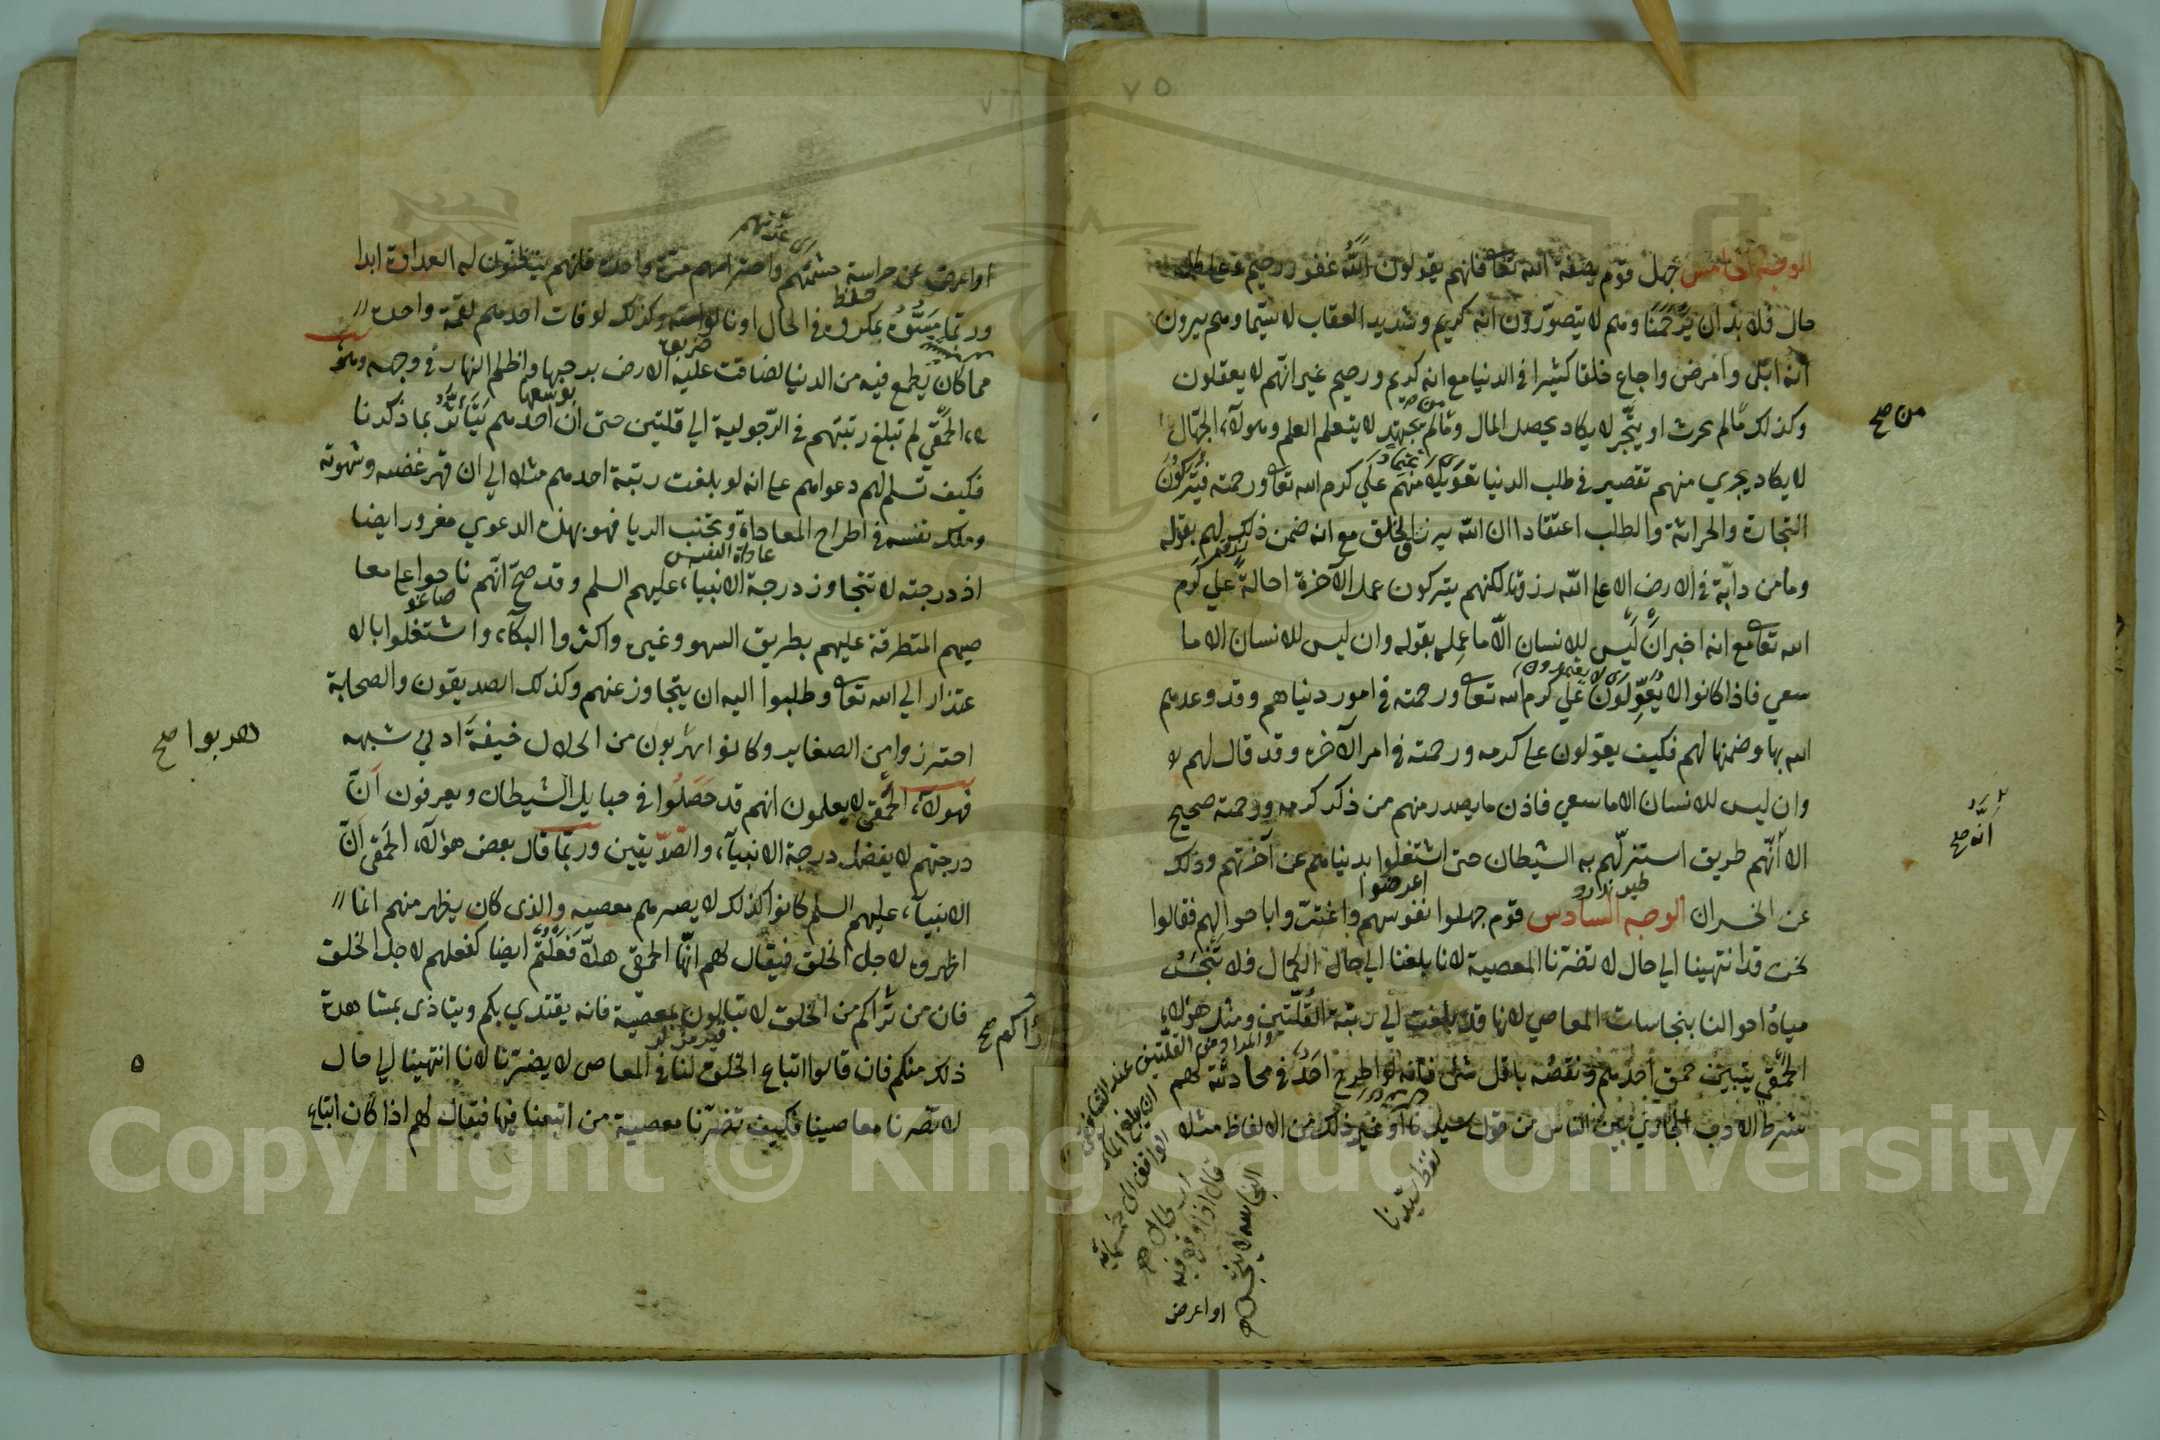 ٧٥
الوجه الخامس جهل قوم بصفة الله تعا فانهم يقولون الله غفور رحيم فعلى كل
حال فلا بد ان يرحمنا وهم لا يتصورون انه كريم وشديد العقاب لا سيما وهم يرون
انه ابتلى وامرض واجاع خلقا كثيرا في الدنيا مع انه كريم ورحيم غير انهم لا يعقلون
وكذلك مالم يحرث او يتجر لا يكاد يحصل المال ومالم يجتهد لا يتعلم العلم وهولاء الجهال
من صح
لا يكاد يجري منهم تقصير في طلب الدنيا تعويلا منهم على كرم الله تعا ورحمته فيتركون
اعتمادا
التجارة والحراثة والطلب اعتقادا ان الله يرزق الخلق مع انه ضمن ذلك لهم بقوله
وما من دابة في الارض الا على الله رزقها لكنهم يتركون عمل الآخرة احالة على كرم
الله تعا مع انه اخبر ان ليس للانسان الا ما عمله بقوله وان ليس للانسان الا ما
سعي فاذا كانوا لا يعولون على كرم الله تعا ورحمته في امور دنياهم وقد وعدهم
الله بها وضمنها لهم فكيف يعولون على كرمه ورحمته في امر الآخرة وقد قال لهم لا
وان ليس للانسان الا ما سعي فاذن ما يصدر منهم من ذكر كرمه ورحمته صحيح
الا انهم طريق استزلهم به الشيطان حتى اشتغلوا بدنياهم عن آخرتهم وذلك
انه صح
عن الخسران الوجه السادس قوم جهلوا نفوسهم واغترت واباحوا لهم فقالوا
اعرضوا
نحن قد انتهينا الي حال لا تضرنا المعصية لانا بلغنا الي حال الكمال فلا تنجس
مياه احوالنا بنجاسات المعاصي لانها قد بلغت الي رتبة القلتين ومثل هؤلاء
الحمقي يتبين حمق احدهم ونقصه باقل شئ فانه لو اطرح احد في محادثة لهم
شرط الادب الجاري بين الناس من قول سيدنا او غير ذلك من الالفاظ مثلا
او اعرض
٧٦
او اعرض عن حراسة حشمتهم واحترامهم مرة واحدة فانهم يبتطنون له العداوة ابدا
حفظ
وربما يسوءه بمكروه في الحال او نالوا منه وكذلك لو فات احدهم لقمة واحدة
مما كان يطمع فيه من الدنيا لضاقت عليه الارض برحبها واظلم النهار في وجهه
بوسعها
الحمقي لم تبلغ رتبتهم في الرجولية الي قلتين حتى ان احدهم يتأثر بما ذكرنا
فكيف تسلم لهم دعواهم على انه لو بلغت رتبة احدهم مثلا الي ان قهر غضبه وشهوته
وملك نفسه في اطراح المعاداة وتجنب الريا فهو بهذه الدعوي مغرور ايضا
اذ درجته لا تتجاوز درجة الانبياء عليهم السلم وقد صح انهم ناحوا على معا
صيهم المتطرقة عليهم بطريق السهو وغيره واكثروا البكاء واشتغلوا بالا
عتذار الي الله تعا وطلبوا اليه ان يتجاوز عنهم وكذلك الصديقون والصحابة
احترزوا من الصغاير وكانوا يهربون من الحلال خيفة ادني شبهة
هربوا صح
فهولاء الحمقي لا يعلمون انهم قد حصلوا في حبايل الشيطان ويعرفون ان
درجتهم لا يفضل درجة الانبياء والصديقين وربما قال بعض هؤلاء الحمقى ان
الانبياء عليهم السلم كانوا كذلك لا يضرهم معصيه والذي كان يظهر منهم انما
اظهروه لاجل الخلق فيقال لهم ايها الحمقى هلا فعلتم ايضا كفعلهم لاجل الخلق
فان من تراكم من الخلق لا تبالون بمعصية فانه يقتدي بكم ويتاذى بمشاهدة
رأكم صح
ذلك منكم فان قالوا اتباع الخلق لنا في المعاصي لا يضرنا لانا انتهينا الي حال
لا تضرنا معاصينا فكيف تضرنا معصية من اتبعنا فيها فيقال لهم اذا كان اتباع
Copyright © King Saud University